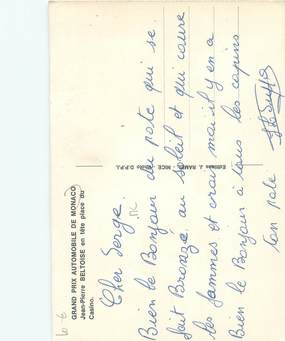 GRAND PRIX AUTOMOBILE DE MONACO
Jean-Pierre BELTOISE en tête place du
Casino.
Cher Serge.
Bien le Bonjour du pote qui se
fait Bronzé au soleil et qui
les fammes et crois mai il y en a
Bien le Bonjour à tous les copins
ton pote
Editions J. RAMEL NICE